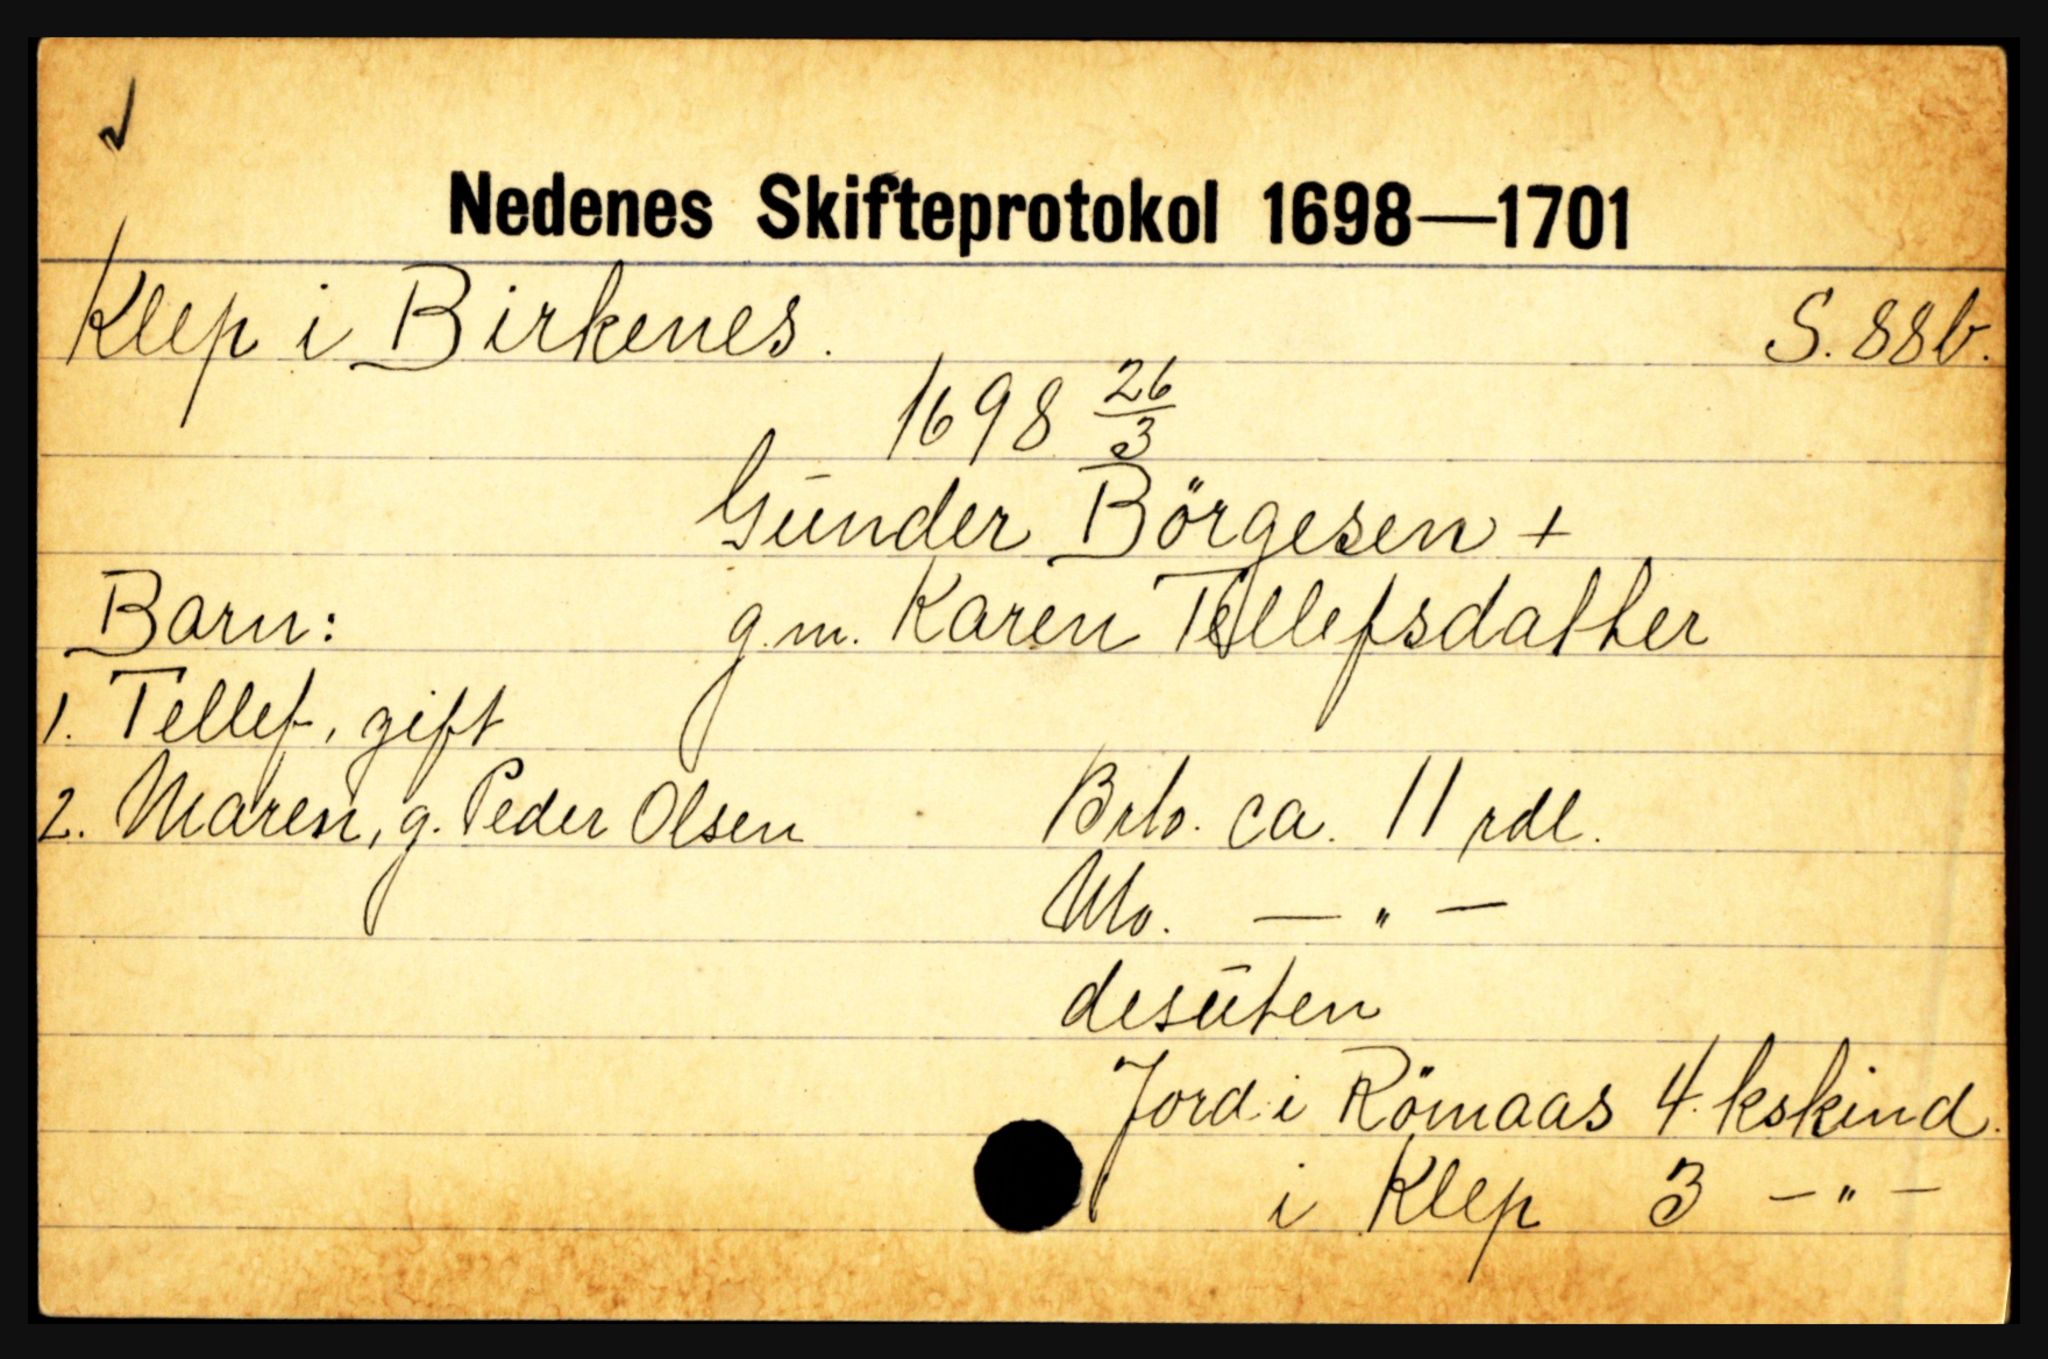 Nedenes Skifteprotokol 1698—1701
Klep i Birkenes. S. 88b.
1698 26/3
Gunder Börgesen +
Barn: g.m. Karen Tellefsdatter
1. Tellef, gift
2. Maren, g. Peder Olsen Brto. ca. 11 rdl.
Nto. — " —
desuten
Jord i Römaas 4 kskind.
i Klep 3 — " —